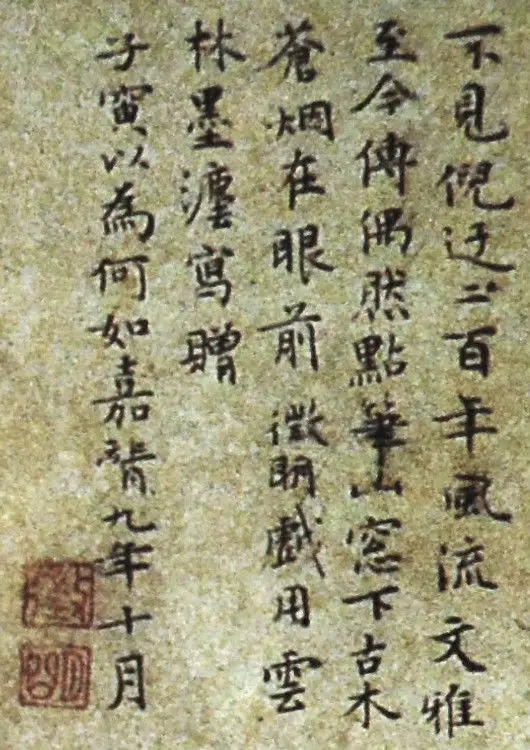 不見倪迂二百年風流文雅
至今傳偶然點筆山窓下古木
蒼烟在眼前徵明戲用雲
林墨灋寫贈
子寅以為何如嘉靖九年十月
徵
明